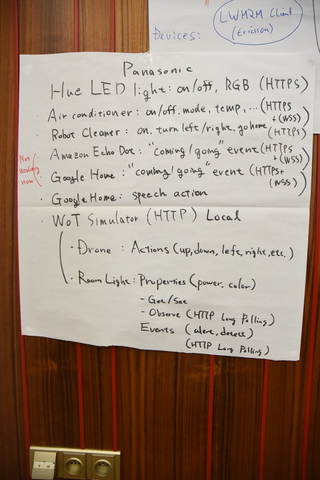 Devices:
LWM2M Client
(Ericsson)
Panasonic
Hue LED light: on/off, RGB (HTTPS)
· Air conditioner: on/off, mode, temp, ... (HTTPS + (WSS)
· Robot Cleaner: on, turn left/right, go home (HTTPS)
· Amazon Echo Dot: "coming/going" event (HTTPS + (WSS))
· Google Home: "coming/going" event (HTTPS+ (WSS))
Not
now
· Google Home: speech action
· WoT Simulator (HTTP) Local
· Drone: Actions (up, down, left, right, etc.)
· Room Light: Properties (power, color)
- Get/Set
- Observe (HTTP Long Polling)
Events (alert, detect)
(HTTP Long Polling)